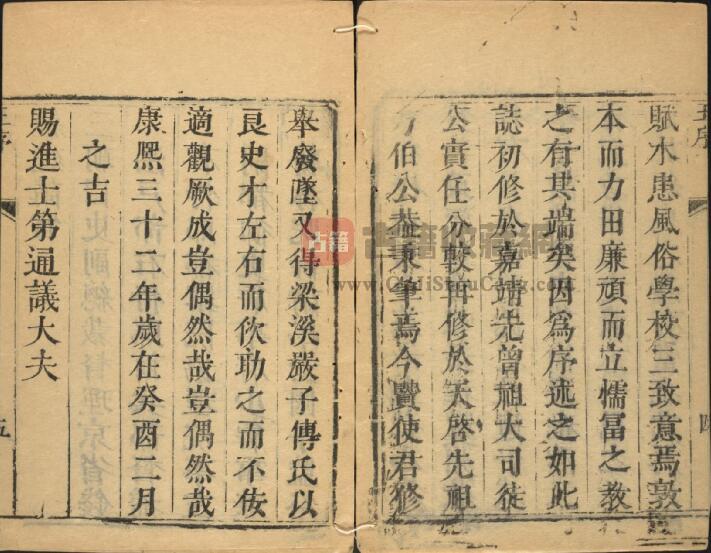 王序
四
賦水患風俗學校三致意焉敦
本而力田廉頑而立懦冨之教
之有其端矣因爲序述之如此
誌初修於嘉靖先曾祖大司徒
公實任分敎再修於天啓先祖
伯公葢秉筆焉今賢使君修
舉廢墜又得梁溪嚴子傳氏以
良史才左右而佽助之而不佞
適觀厥成豈偶然哉豈偶然哉
康熙三十二年歲在癸酉二月
之吉
賜進士第通議大夫
王序
五
古籍
古籍收藏網
GuJiShouCang.com